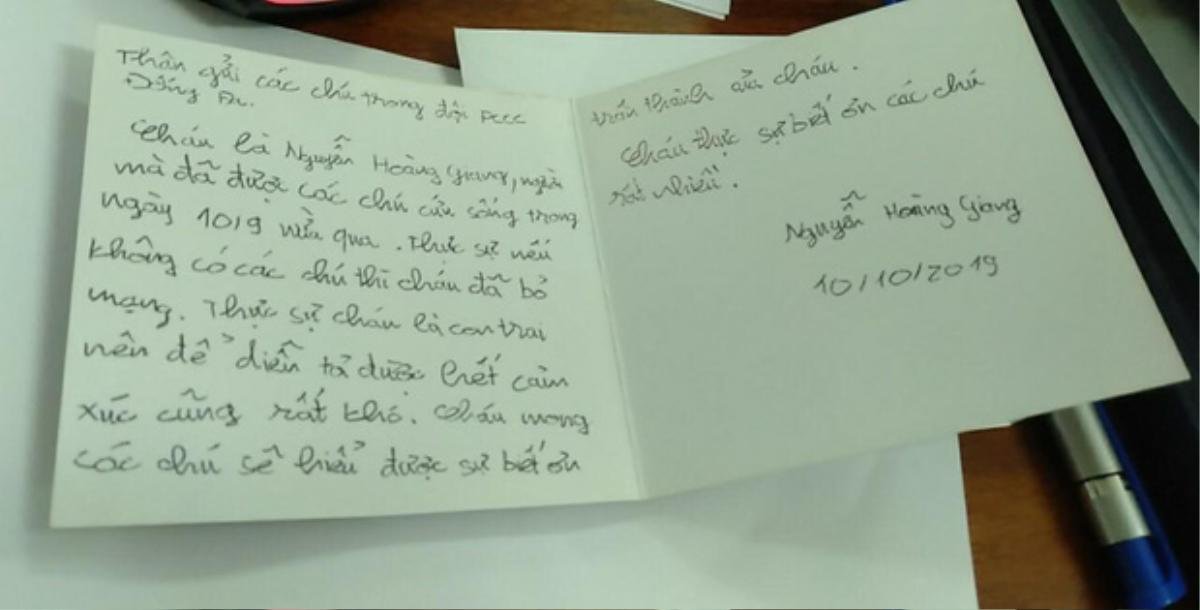 Thân gửi các chú trong đội PCCC
Đống Đa.
Cháu là Nguyễn Hoàng Giang, người
mà đã được các chú cứu sống trong
ngày 10/9 vừa qua. Thực sự nếu
không có các chú thì cháu đã bỏ
mạng. Thực sự cháu là con trai
nên để diễn tả được hết cảm
xúc cũng rất khó. Cháu mong
các chú sẽ hiểu được sự biết ơn
trấn thành của cháu.
Cháu thực sự biết ơn các chú
rất nhiều.
Nguyễn Hoàng Giang
10/10/2019